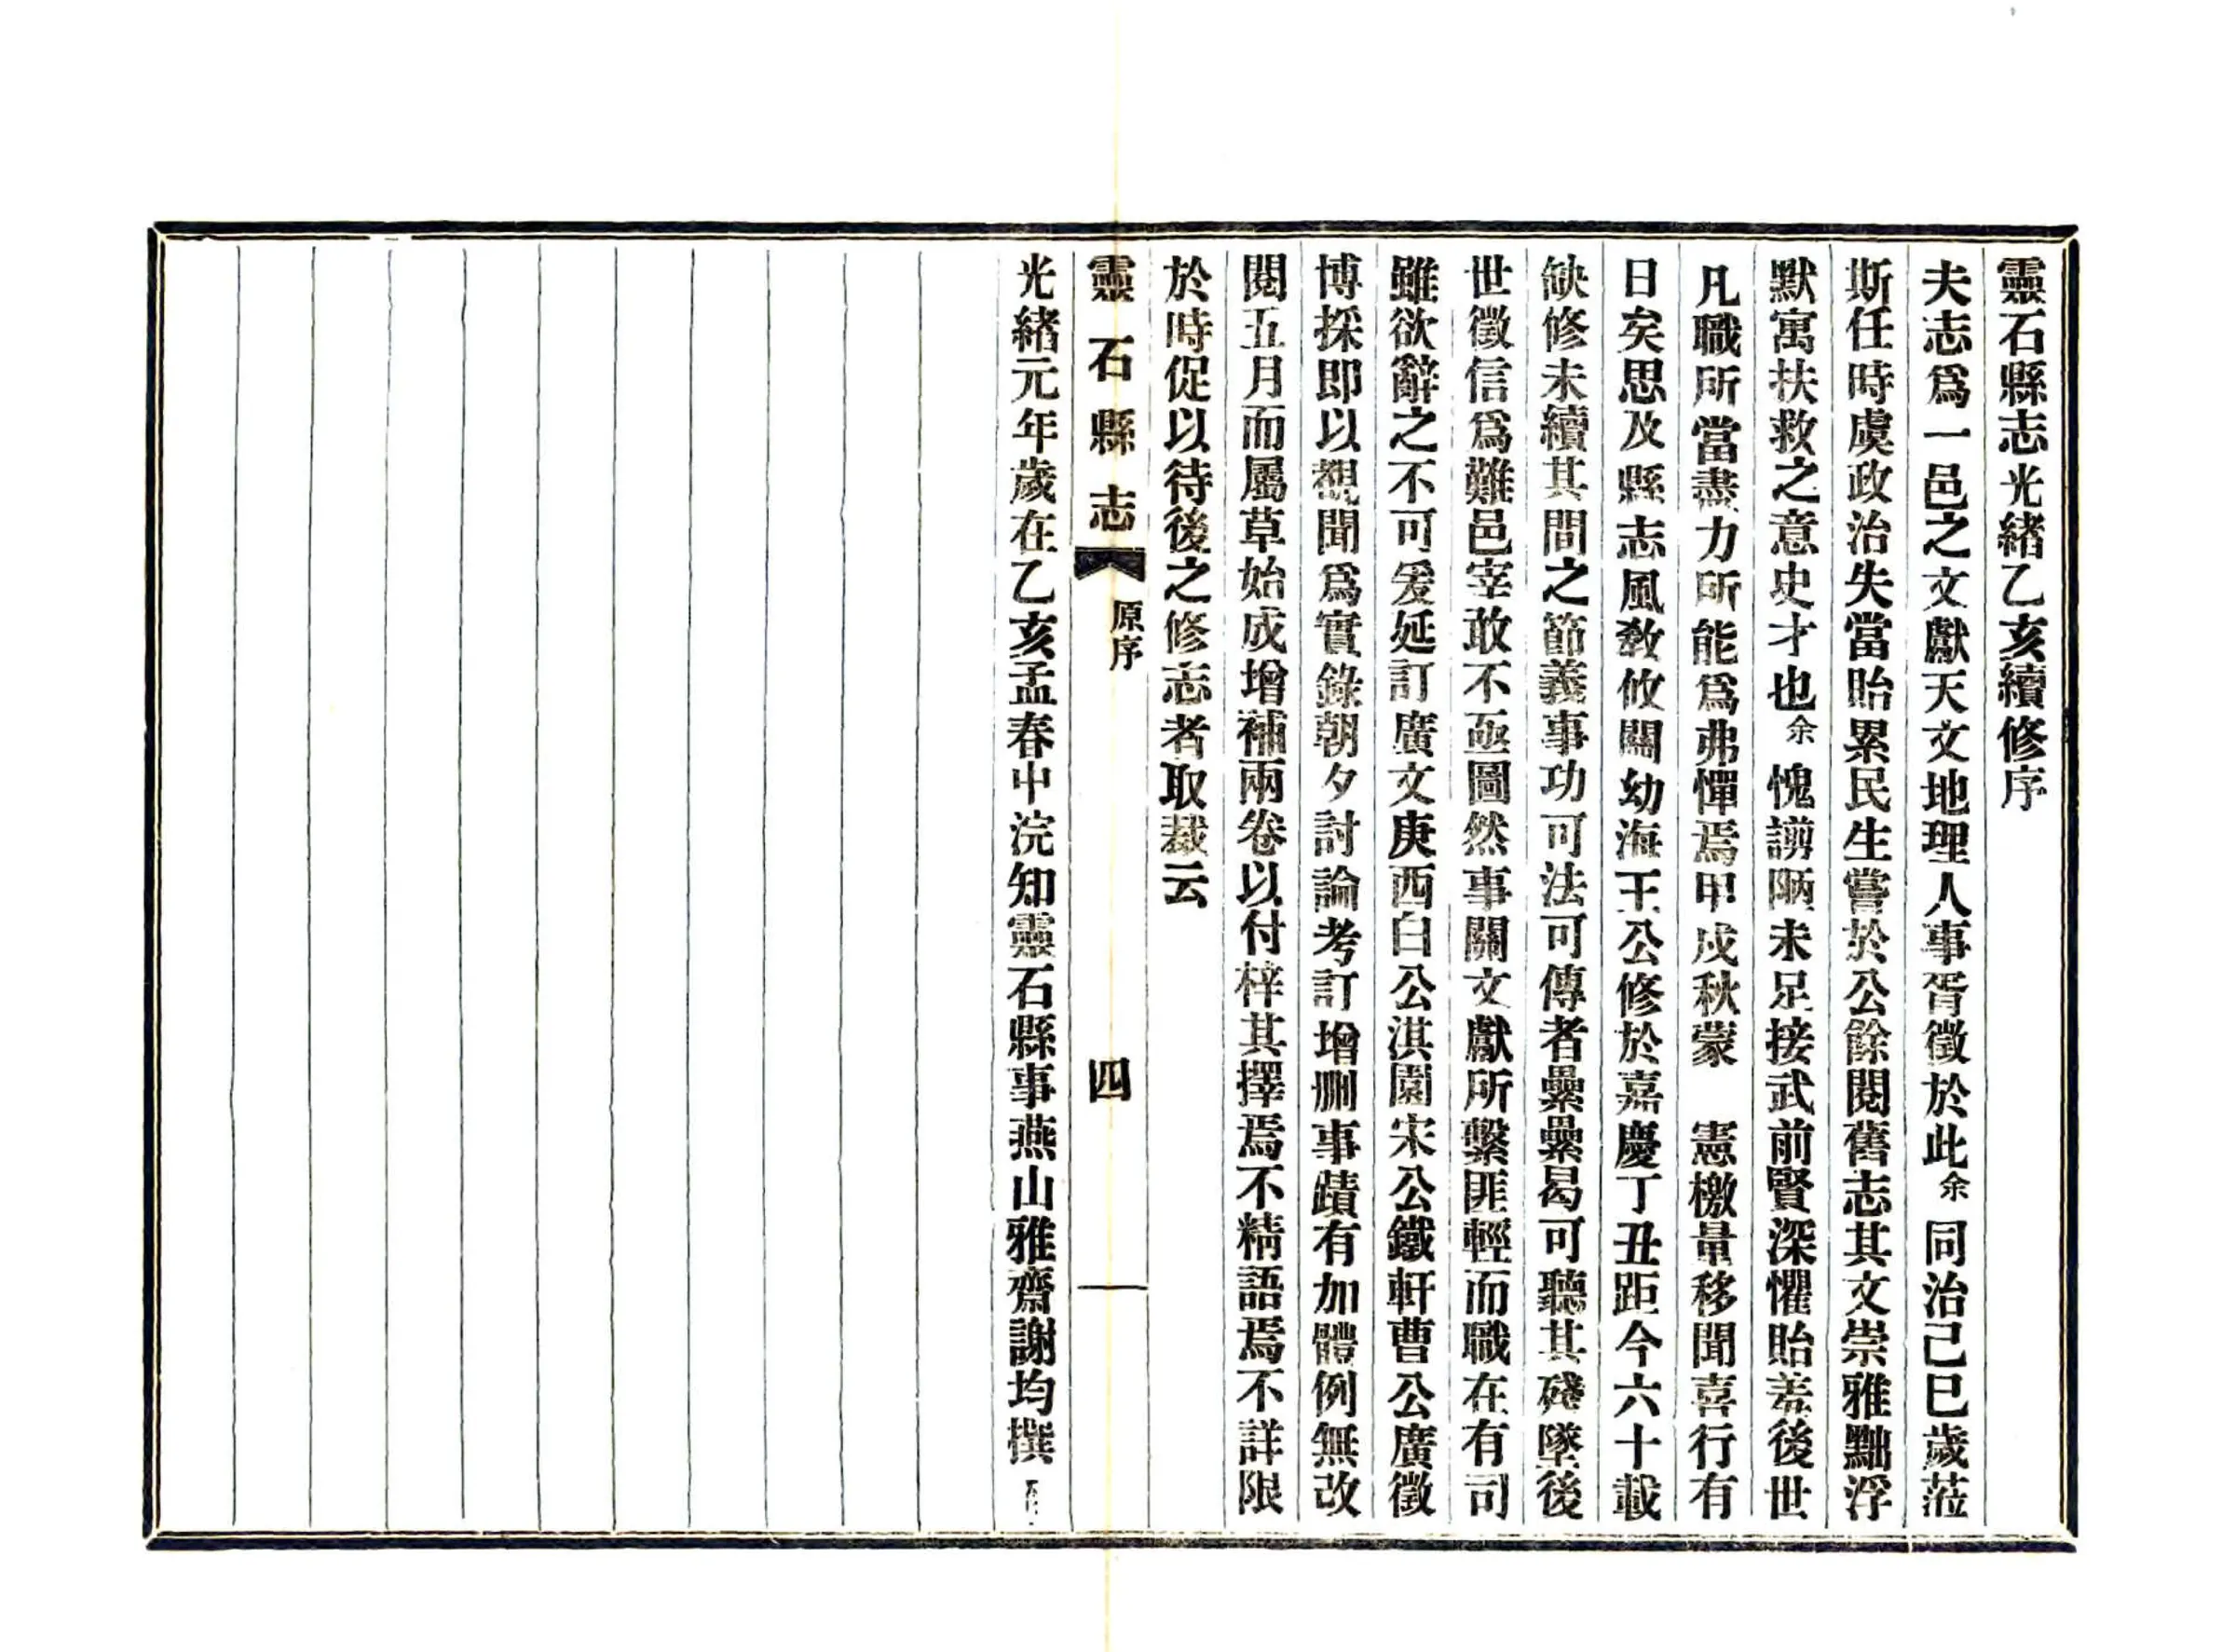 靈石縣志光緒乙亥續修序
夫志爲一邑之文獻天文地理人事胥徵於此余同治己巳歲蒞
斯任時虞政治失當貽累民生嘗於公餘閱舊志其文崇雅黜浮
默寓扶救之意史才也余愧謭陋未足接武前賢深懼貽羞後世
凡職所當盡力所能爲弗憚焉甲戍秋蒙　憲檄量移聞喜行有
日矣思及縣志風教攸關幼海王公修於嘉慶丁丑距今六十載
缺修未續其間之節義事功可法可傳者纍纍曷可聽其殘墜後
世徵信爲難邑宰敢不亟圖然事關文獻所繫匪輕而職在有司
雖欲辭之不可爰延訂廣文庚西白公淇園宋公鐵軒曹公廣徵
博採即以覩聞爲實錄朝夕討論考訂增刪事蹟有加體例無改
閱五月而屬草始成增補兩卷以付梓其擇焉不精語焉不詳限
於時促以待後之修志者取裁云
靈石縣志
原序
四
光緒元年歲在乙亥孟春中浣知靈石縣事燕山雅齋謝均撰